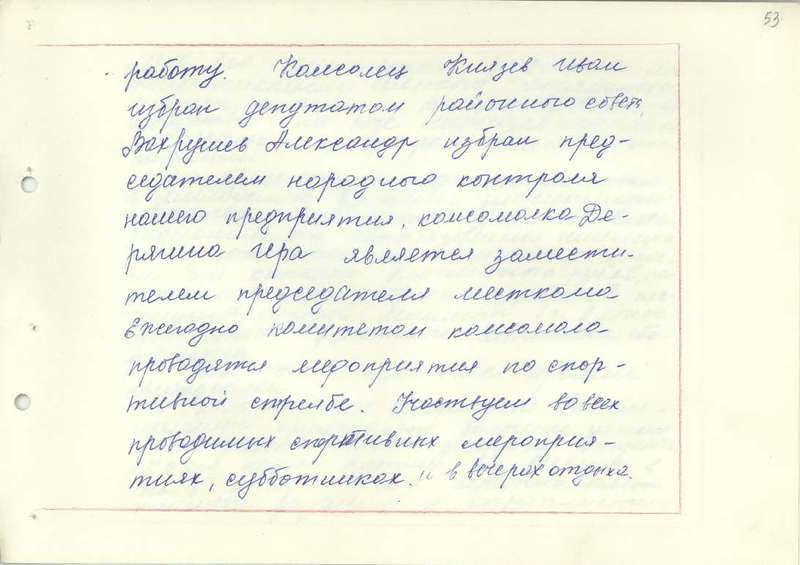 53
работу. Комсомолец Князев Иван
избран депутатом районного совета,
Вахрушев Александр избран пред-
седателем народного контроля
нашего предприятия, комсомолка Де-
рягина Ира является замести-
телем председателя месткома
Ежегодно комитетом комсомола
проводятся мероприятия по спор-
тивной стрельбе. Участвуем во всех
проводимых спортивных мероприя-
тиях, субботниках. и в вечерах отдыха.